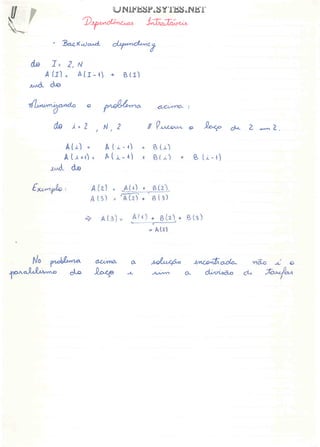 UNIFESP.SYTES.NET
Dependências Intratarefas
• Backward dependency
do I = 2, N
A(I) = A(I-1) + B(I)
end do
Minimizando o problema acima:
do i = 2, N, 2 // Percorre o laço de 2 em 2.
A(i) = A(i-1) + B(i)
A(i+1) = A(i-1) + B(i) + B(i+1)
end do
Exemplo: A(2) = A(1) + B(2)
A(3) = A(2) + B(3)
⇒ A(3) = A(1) + B(2) + B(3)
= A(2)
No problema acima a solução encontrada não é o
paralelismo do laço e sim a divisão de tarefas